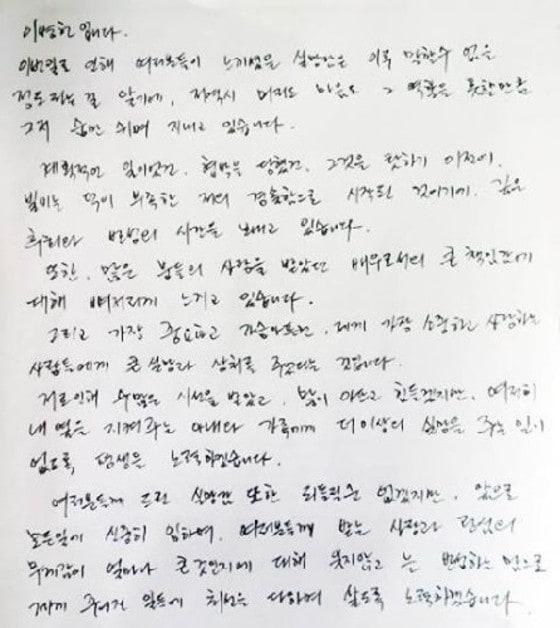 이병헌입니다.
이번일로 인해 여러분들이 느끼셨을 실망감은 이루 말할수 없을
정도라는 걸 알기에, 저역시 머리도 마음도 그 역할을 못할만큼
그저 숨만 쉬며 지내고 있습니다.
계획적인 일이었건, 협박을 당했건, 그것을 탓하기 이전에,
빌미는 덕이 부족한 저의 경솔함으로 시작된 것이기에, 깊은
후회와 반성의 시간을 보내고 있습니다.
또한, 많은 분들의 사랑을 받았던 배우로서의 큰 책임감에
대해 뼈저리게 느끼고 있습니다.
그리고 가장 중요하고 가슴아프건, 제게 가장 소중하고 사랑하는
사람들에게 큰 실망과 상처를 주었다는 것입니다.
저로인해 수많은 시선을 받았고, 많이 아프고 힘든겠지만, 여전히
내 옆을 지켜주는 아내와 가족에게 더이상의 실망을 주는 일이
없도록 평생을 노력하겠습니다.
여러분들께 드린 실망감 또한 되돌릴순 없겠지만, 앞으로
모든일에 신중히 임하며, 여러분들께 받는 사랑과 관심의
무게감이 얼마나 큰것인지에 대해 잊지않고 늘 반성하는 맘으로
제게 주어진 일들에 최선을 다하며 살도록 노력하겠습니다.